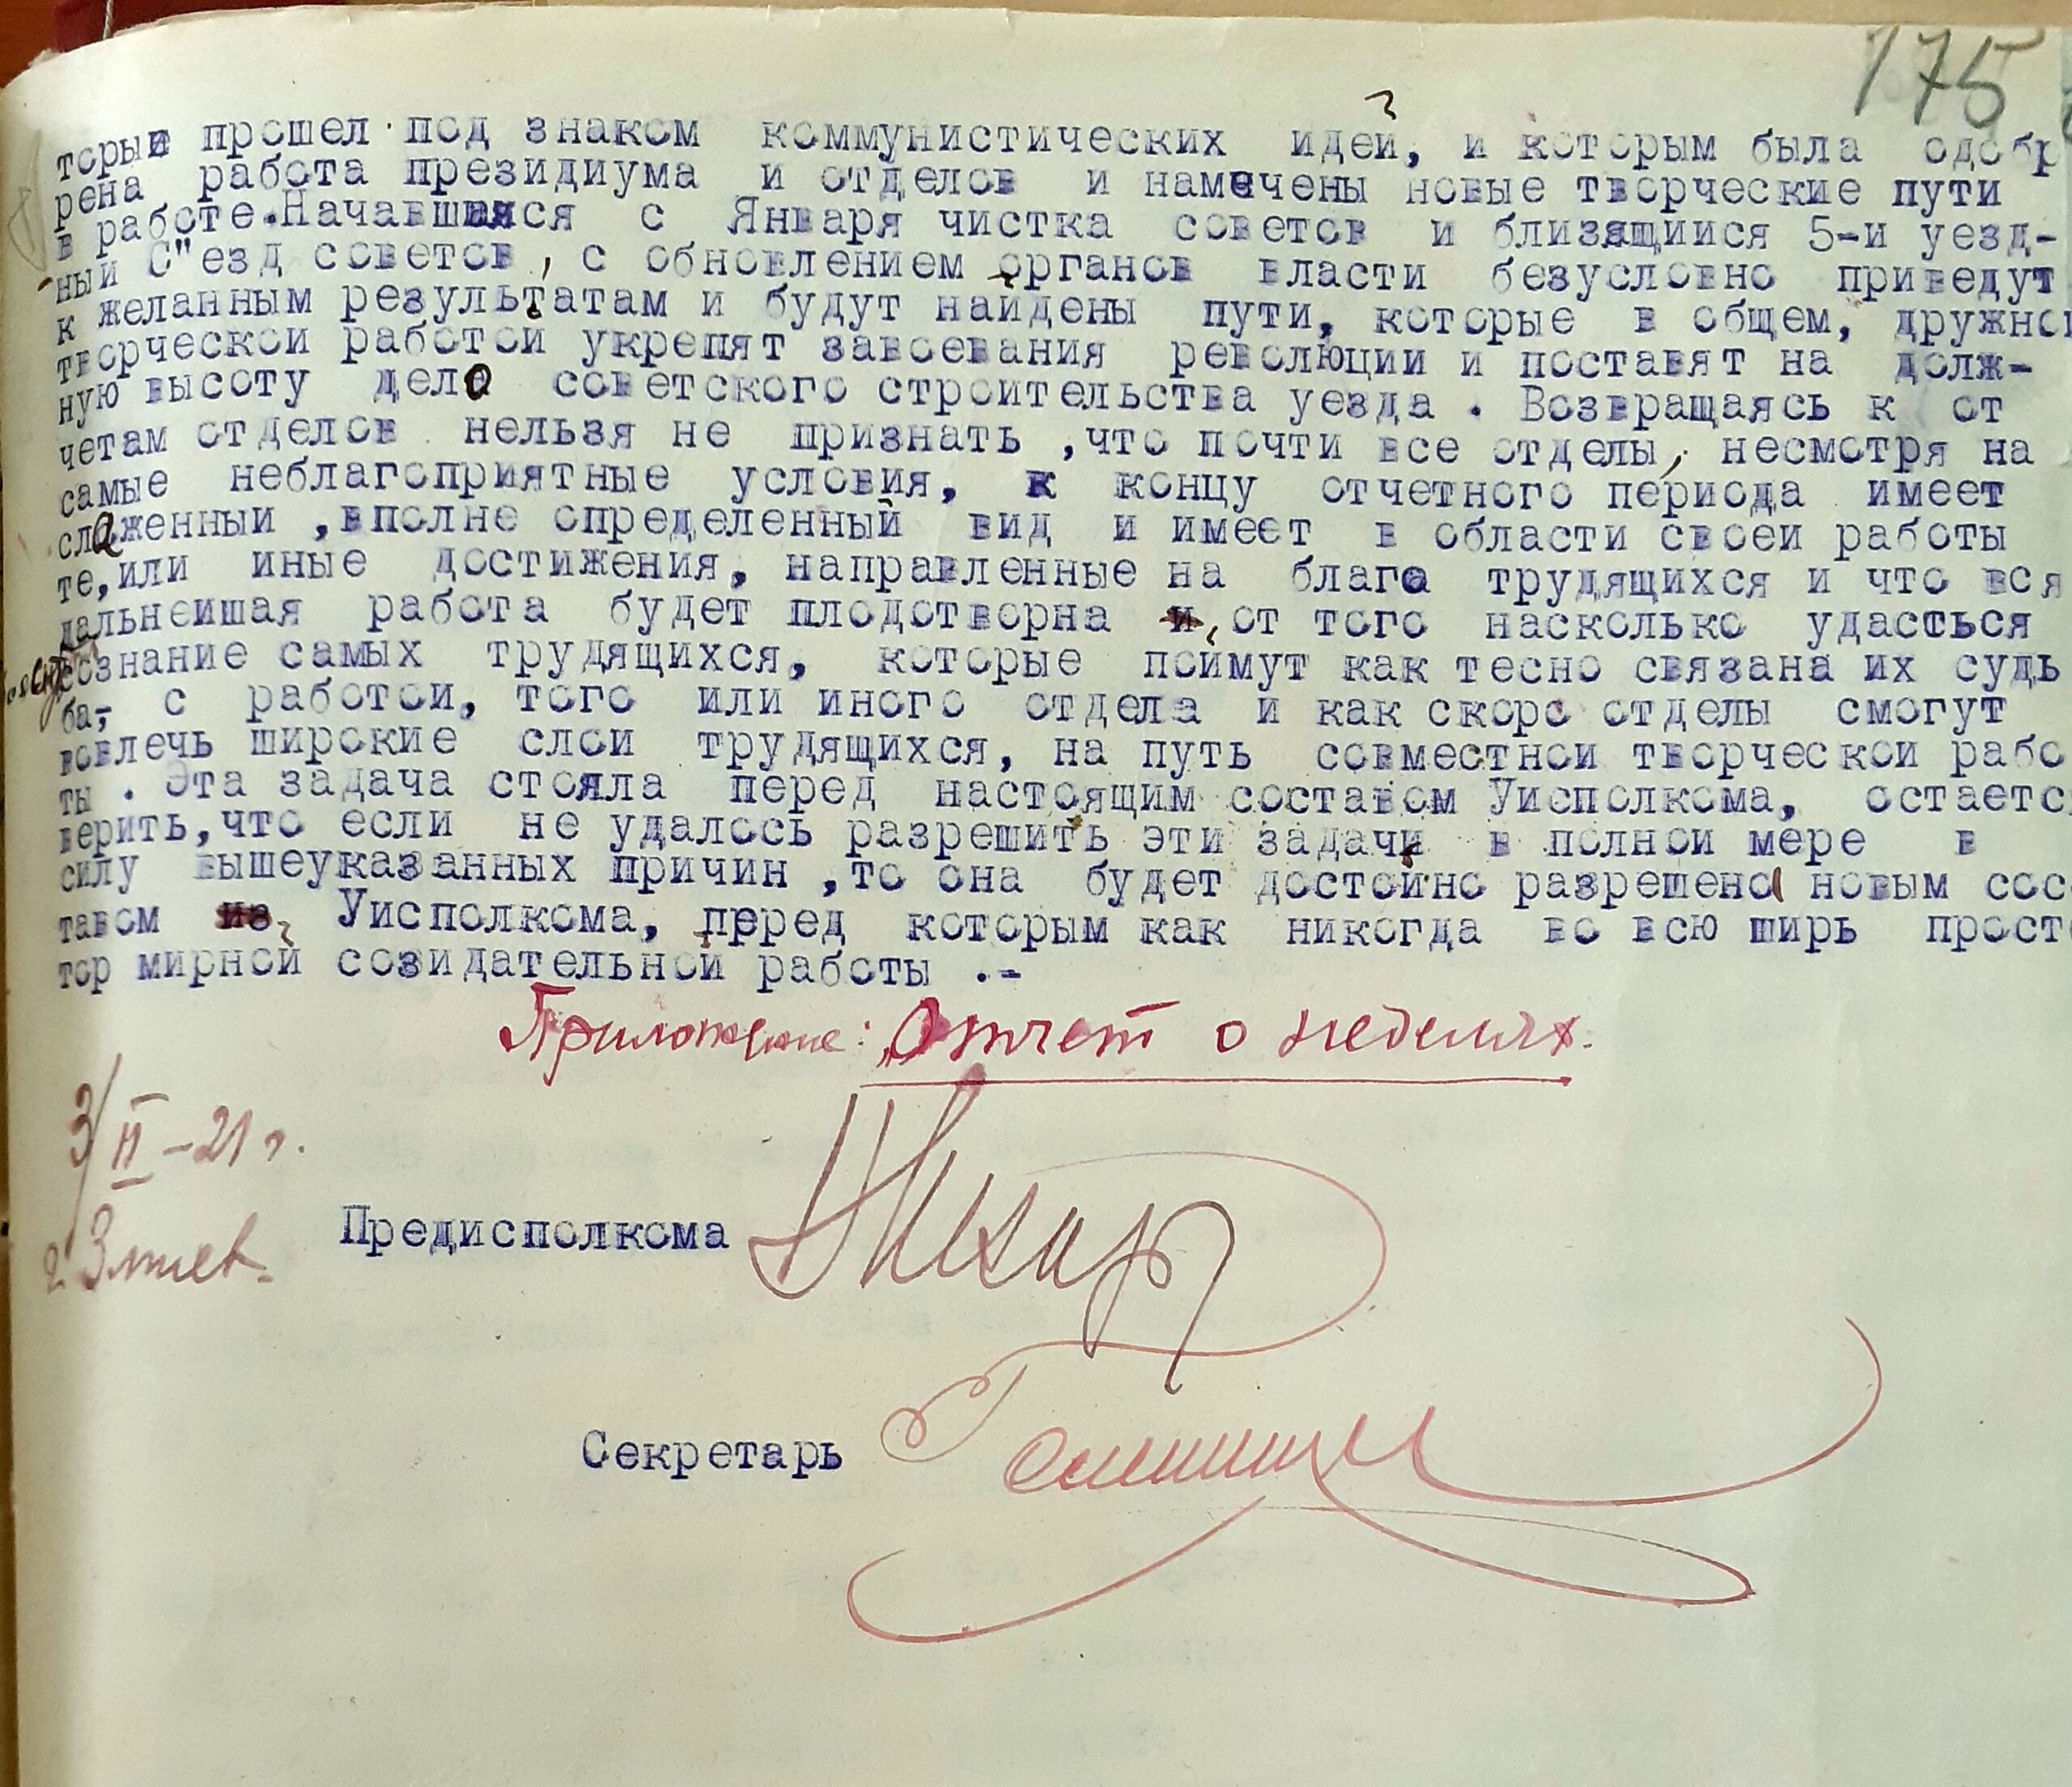 175
торый прошел под знаком коммунистических идей, и которым была одобр
рена работа президиума и отделов и намечены новые творческие пути
в работе.Начавшаяся с Января чистка советов и близящиися 5-и уезд-
ный С"езд советов, с обновлением органов власти безусловно приведут
к желанным результатам и будут найдены пути, которые в общем, дружно
творческой работой укрепят завоевания революции и поставят на долж-
ную высоту дело советского строительства уезда . Возвращаясь к от
четам отделов нельзя не признать ,что почти все отделы, несмотря на
самые неблагоприятные условия, к концу отчетного периода имеет
слаженный ,вполне определенный вид и имеет в области своеи работы
те,или иные достижения, направленные на благо трудящихся и что вся
дальнеишая работа будет плодотворна от того насколько удасться
сознание самых трудящихся, которые поймут как тесно связана их судь
ба, с работой, того или иного отдела и как скоро отделы смогут
вовлечь широкие слои трудящихся, на путь совместнои творческои рабо
ты . Эта задача стояла перед настоящим составом Уисполкома, остаетс
верить,что если не удалось разрешить эти задачи в полнои мере в
силу вышеуказанных причин ,то она будет достойно разрешена новым сос
тавом Уисполкома, перед которым как никогда во всю ширь прост
тор мирной созидательной работы .-
Приложение: Отчет о неделях.
3/II-21 г.
г. Змиев.
Предисполкома
Секретарь